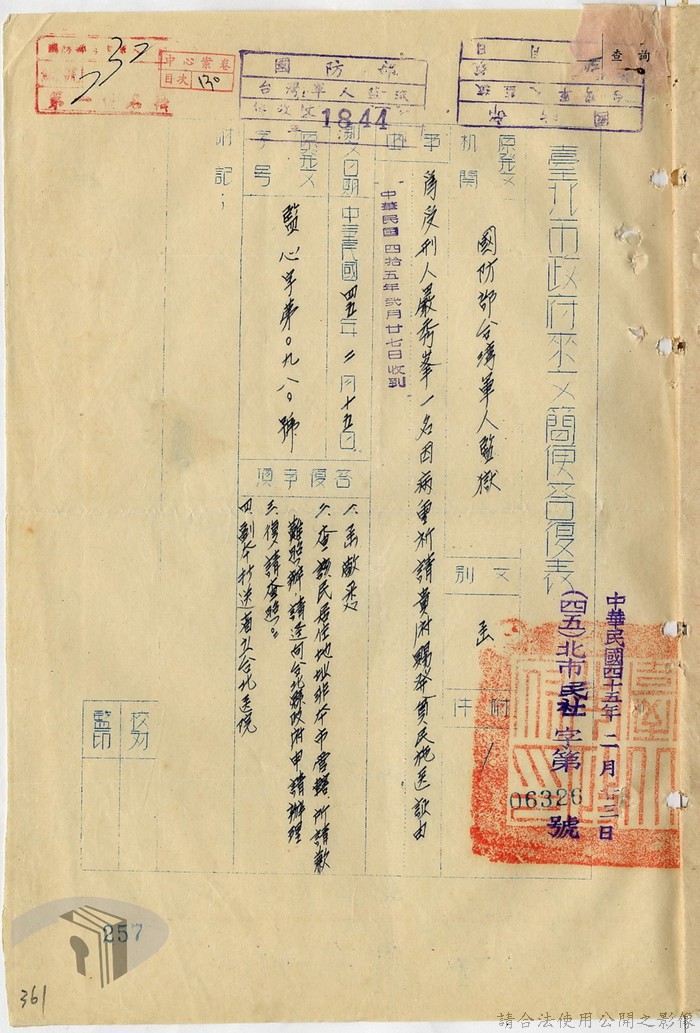 臺北市政府來文簡便答復表
中華民國四十五年二月廿三日
(四五)北市民社字第06326號
原發文機關
國防部台灣軍人監獄
文別
函
附件
/
事由
為受刑人嚴秀峯一名因病重祈請貴府賜發貧民施送診由
中華民國四拾五年貳月廿七日收到
來文日期
中華民國四五年二月十五日
原發文字號
監心字第0九八0號
答復事項
一、函敬悉
二、查該民居住地址非本市管轄所請歉難照辦請逕向台北縣政府申請辦理
三、復請查照。
四、副本抄送省立台北醫院
附記:
校對
監印
國防部
台灣軍人監獄
1844
中心案卷
目次
130
查詢
257
361
請合法使用公開之影像